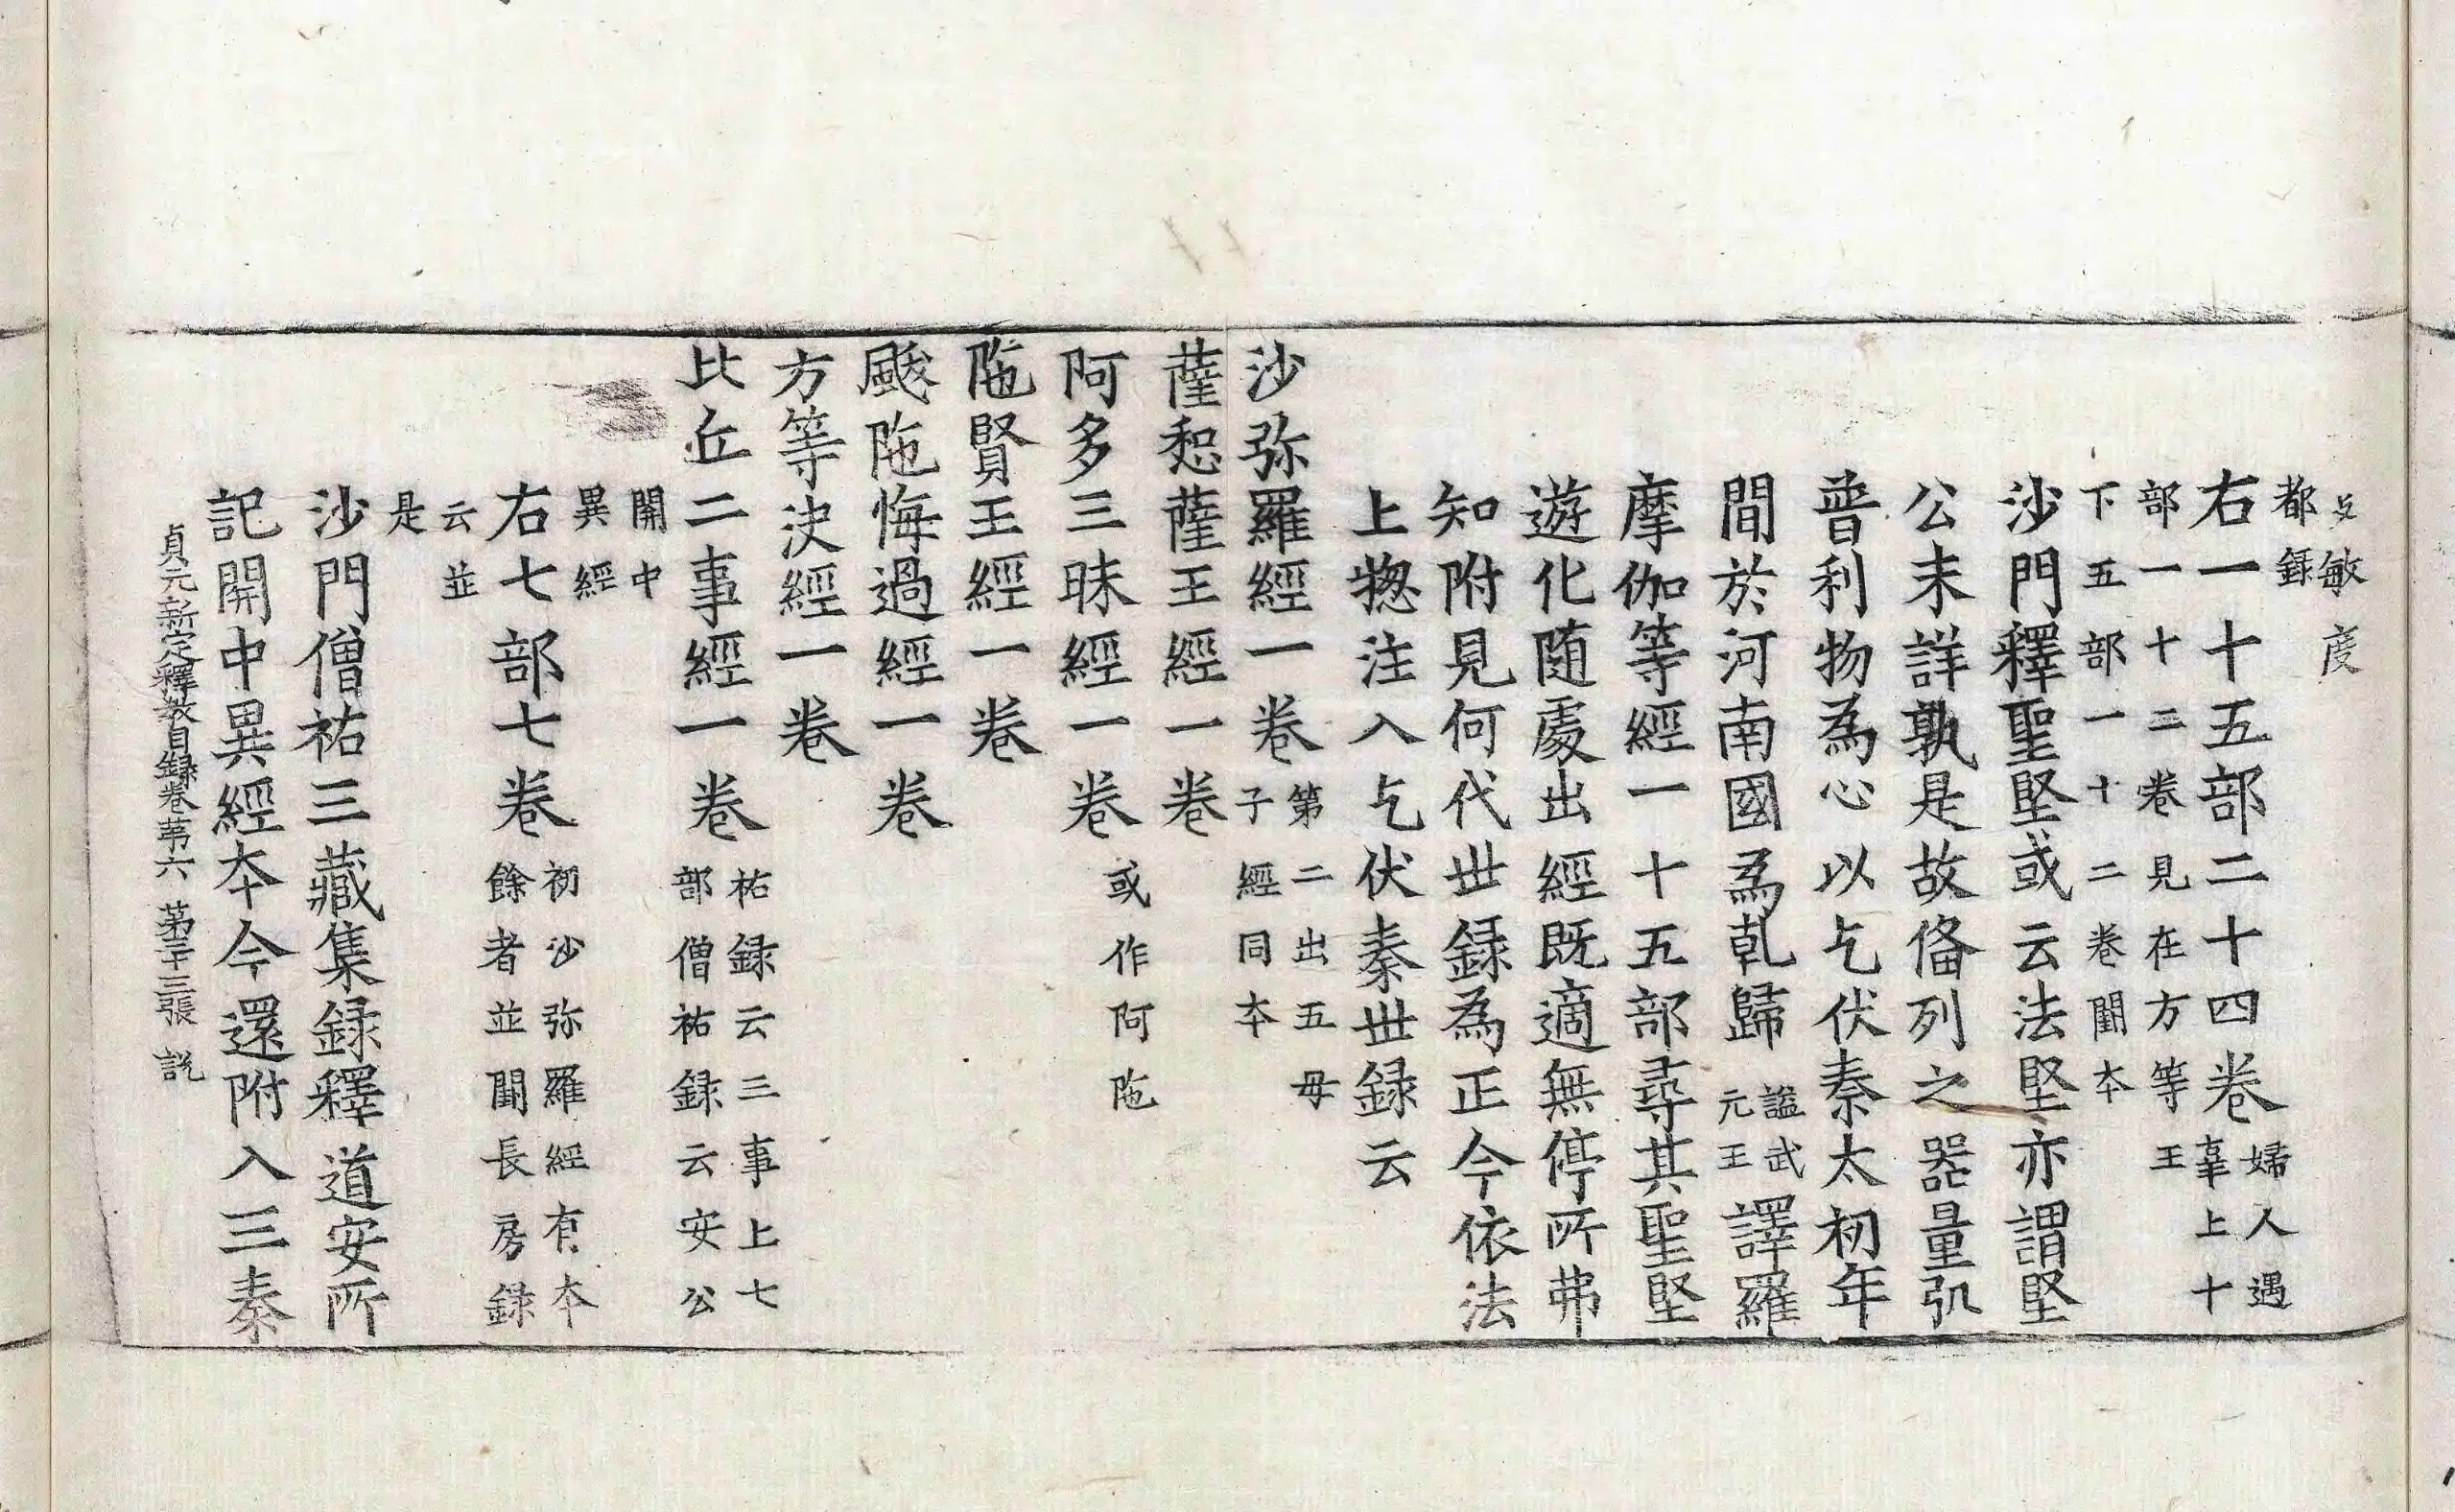 敏 度
都録
右一十五部二十四卷婦人遇辜上十
部一十二卷見在方等王
下五部一十二卷闕本
沙門釋聖堅或云法堅亦謂堅
公未詳孰是故俻列之器量弘
普利物為心以乞伏秦太初年
間於河南國為乹歸謚武元王譯羅
摩伽等經一十五部尋其聖堅
遊化随處出經既適無停所弗
知附見何代世録為正今依法
上揔注入乞伏秦世録云
沙弥羅經一卷第二出五母子經同本
薩惒薩王經一卷
阿多三昧經一卷或作阿陁
陁賢王經一卷
颰陁悔過經一卷
方等決經一卷
比丘二事經一卷祐録云三事上七部僧祐録云安公
關中
異經
右七部七卷初沙弥羅經有本餘者並闕長房録
云並
是
沙門僧祐三藏集録釋道安所
記關中異經本今還附入三秦
貞元新定釋教目録卷苐六 苐三十三張 説